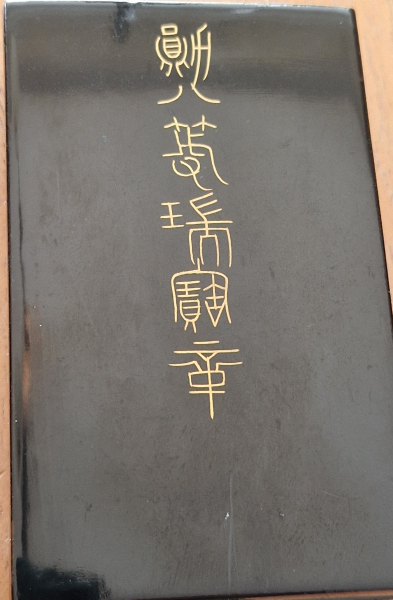 勲八等瑞寳章